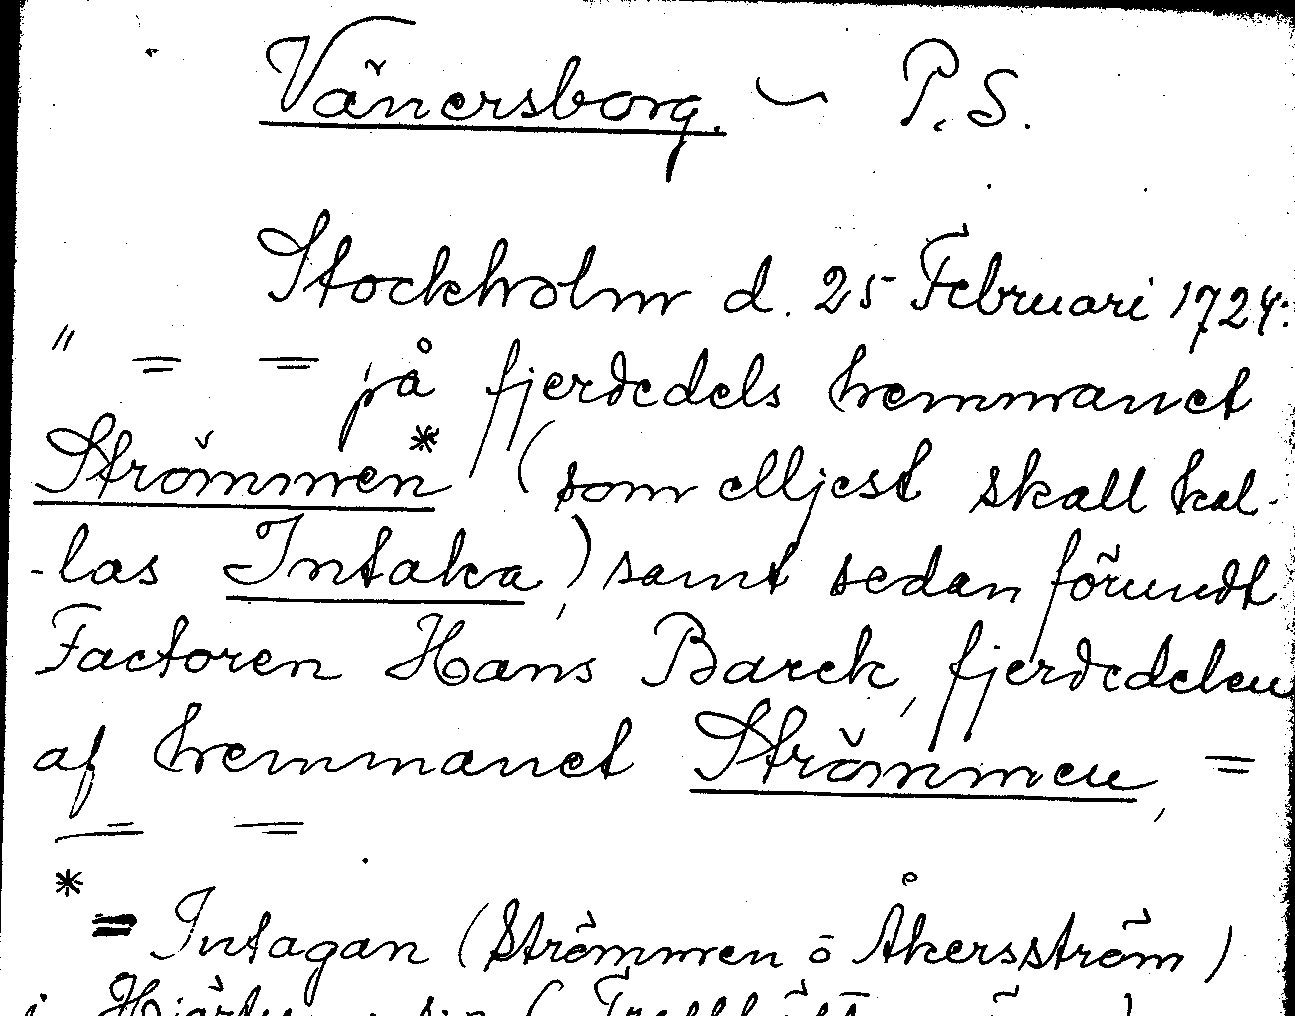 Vänersborg. — P.S.
Stockholm d. 25 Februari 1724:
" = = på fjerdedels hemmanet
Strömmen* (som elljest skall kal-
-las Intaka), samt sedan förundt
Factoren Hans Barck, fjerdedelen
af hemmanet Strömmen, =
= =
* = Intagan (Strömmen o Åkersström)
i Hjärtums